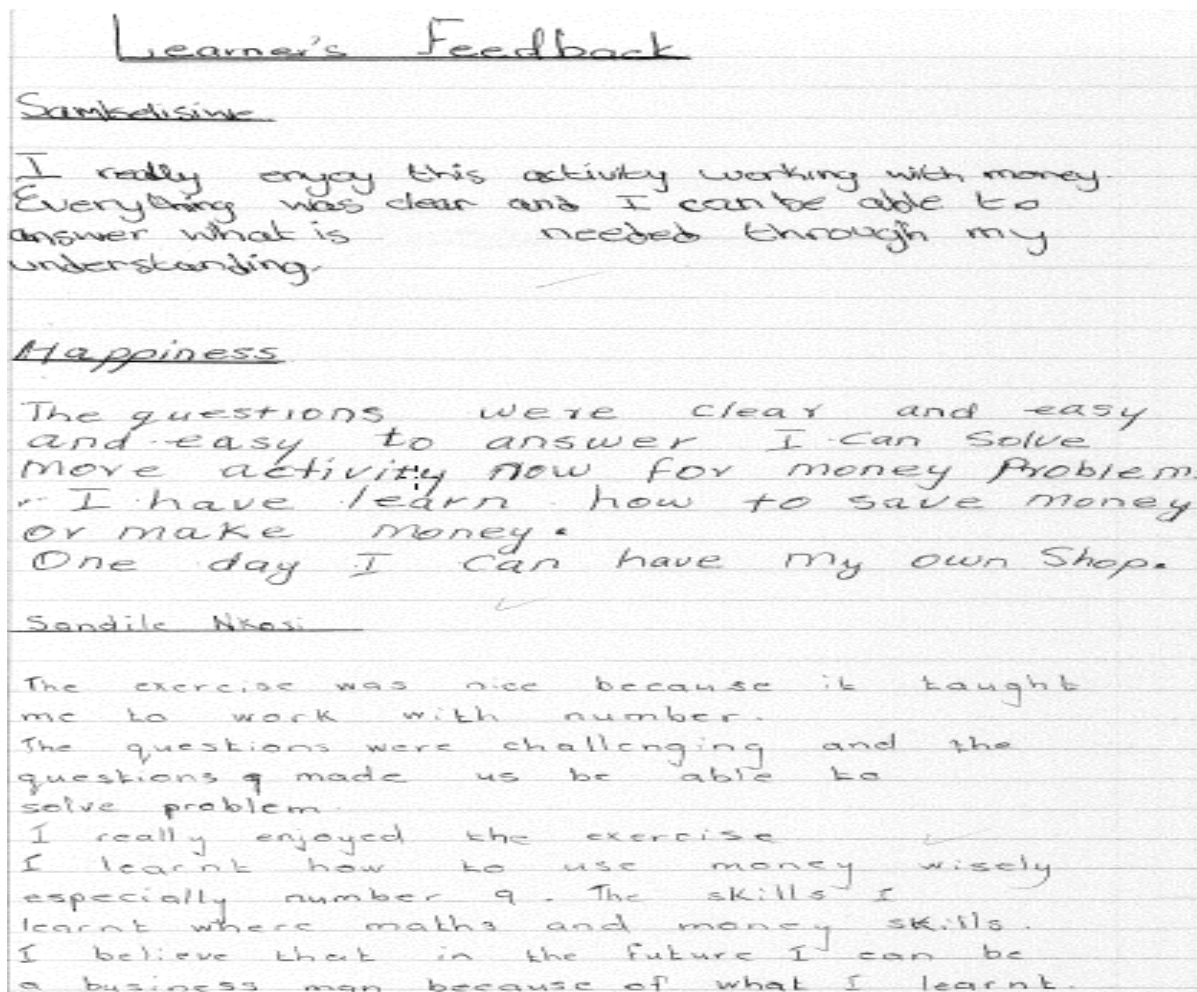 Learner's Feedback
Samkelisiwe
I really enjoy this activity working with money.
Everything was clear and I can be able to
answer what is needed through my
understanding.
Happiness
The questions were clear and easy
and easy to answer I can solve
more activity now for money Problem
. I have learn how to save money
or make money.
One day I can have my own Shop.
Sandile Nkosi
The exercise was nice because it taught
me to work with number.
The questions were challenging and the
questions 9 made us be able to
solve problem.
I really enjoyed the exercise
I learnt how to use money wisely
especially number 9. The skills I
learnt where maths and money skills.
I believe that in the future I can be
a business man because of what I learnt.